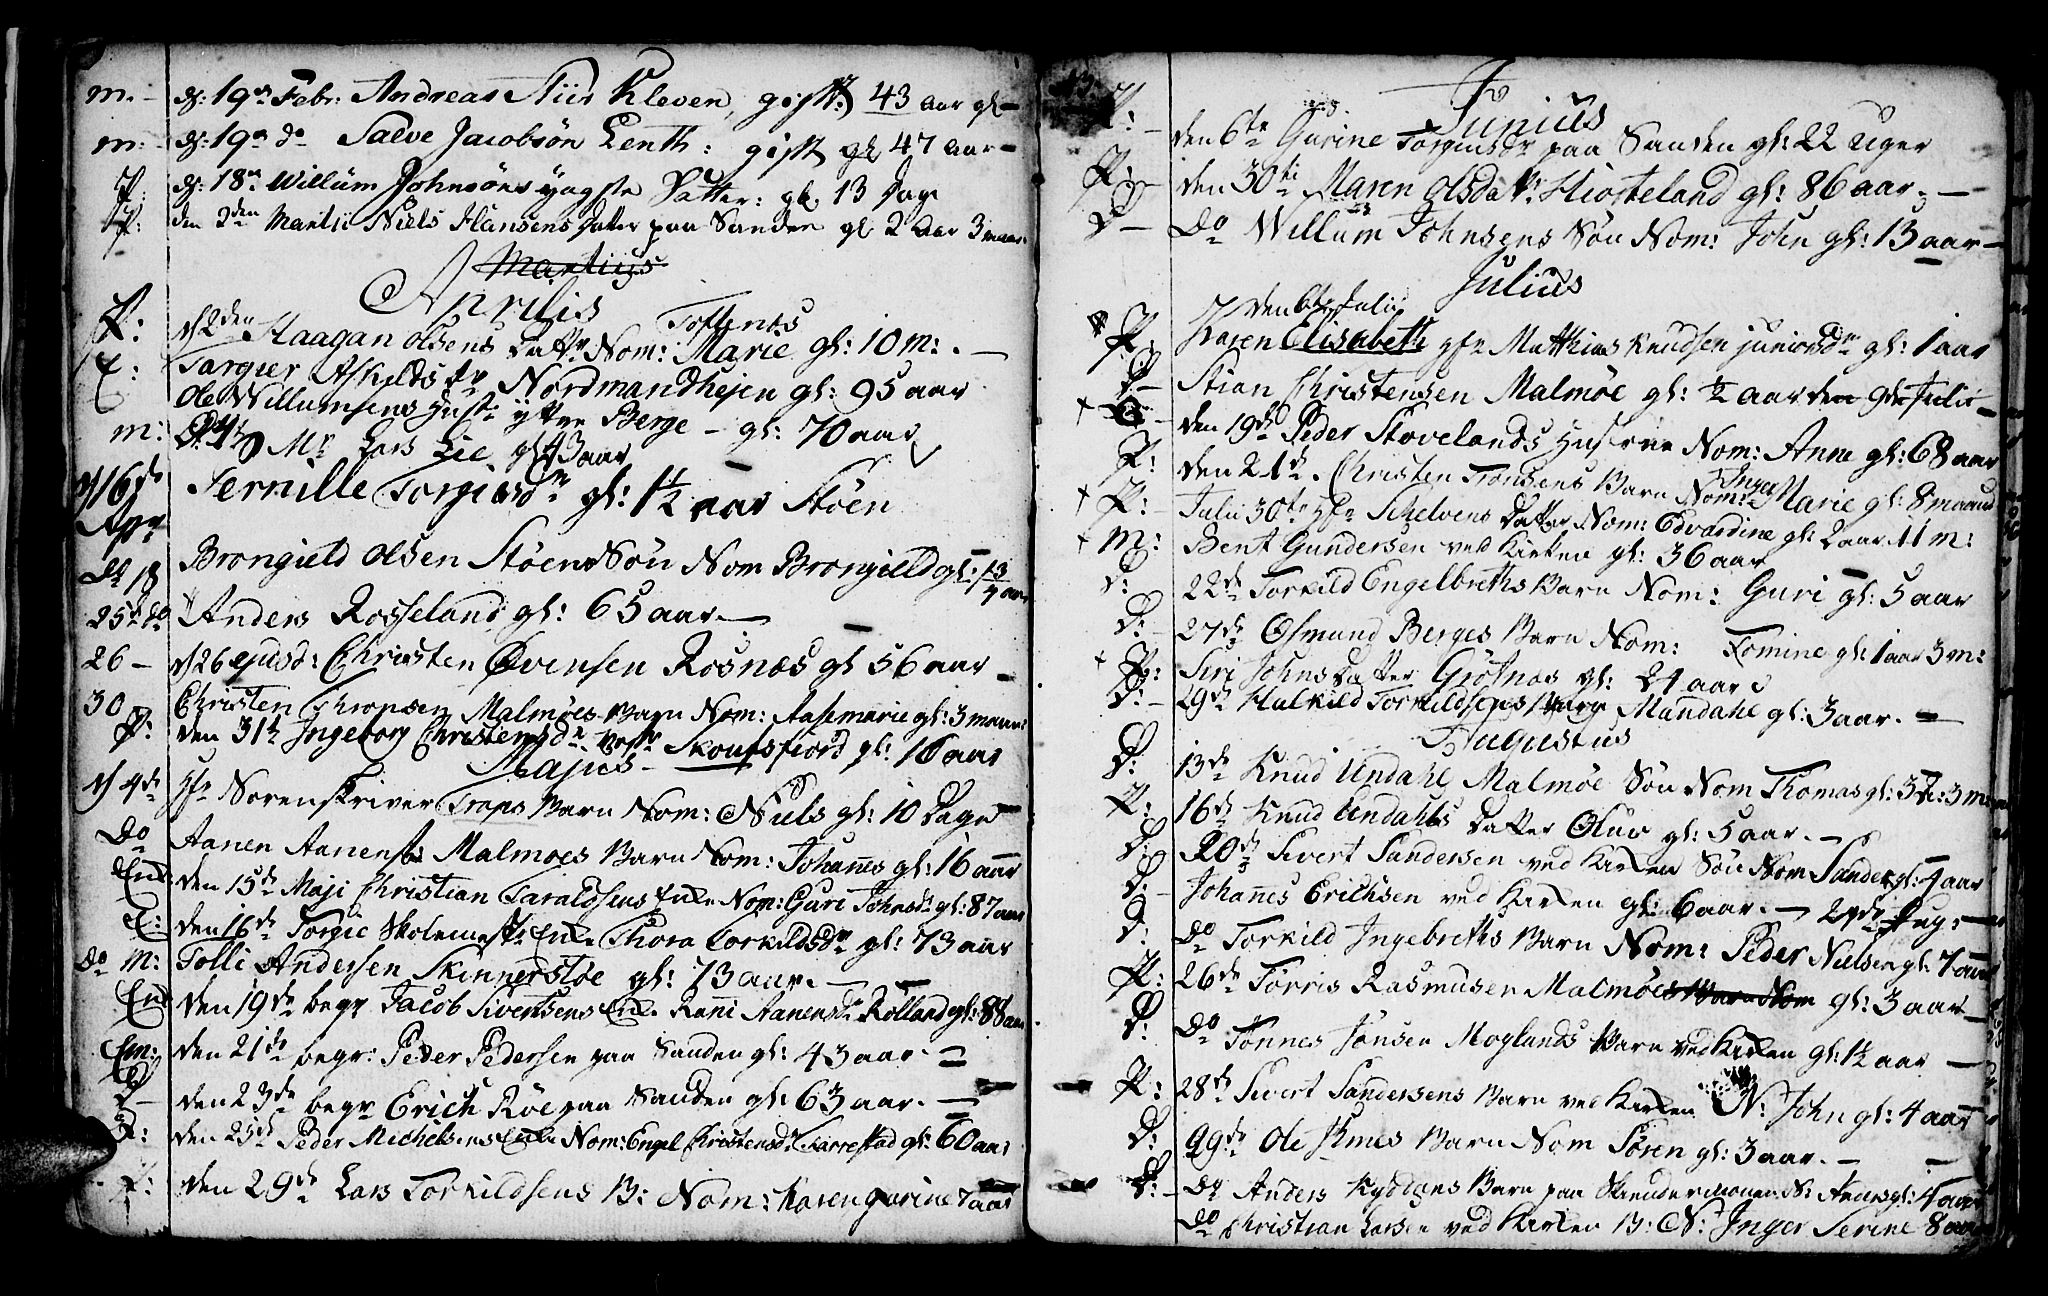 m. - d: 19de Febr: Andreas Stiis Kleven, gift 43 aar gl -
m: - d: 19de do Salve Jacobsön Lenth: gift gl 47 aar -
P. d: 18de Willum Johnsöns yngste Datter: gl. 13 Dage
P: den 2den Martii Niels Hansens Datter paa Sanden gl 2 aar 3 maan
Martius
Aprilis
P: d 2den Haagan Olsens Dattr Nom: Marie gl: 10 m: . - Toftenæs
E: Targier Askilds Nordmandhejen gl: 95 aar
Ole Willumsens Hustr yttre Berge - gl: 70 aar
m: Mr Lars Lie gl 43 aar
d 16de Apr Pernille Torgiersdr gl: 1½ aar Stöen
Do 18 Brongield Olsen Stöens Sön Nom Brongield gl: 1 3/4 aar
25de do Anders Rosseland gl: 65 aar -
26 - d 26 ejusd: Christen Øvensen Rosnæs gl 56 aar -
30 Christen Thronsen Malmöes Barn Nom: Aasemarie gl: 3 maan:
P: den 31te Ingeborg Christensdr Skoufsfiord gl: 16 aar
Majus
d 4de Hr Sorenskriver Traps Barn Nom: Niels gl: 10 Dage
Do Aanen Aanens Malmoes Barn Nom: Johanes gl: 16 aar
Enk: den 15de Maji Christian Taraldsens Enke Nom: Guri Johnsdr gl: 87 aar
E: den 16de Torgie Skolemestr Enke Thora Torkildsdr gl: 73 aar
Do M: Tolli Andersen Skinnerstöe gl: 73 aar. -
Enk den 19de begr Jacob Sivertsens Enke Rani Aanensdr Rölland gl: 88 aar
Em: den 21de begr: Peder Pedersen paa Sanden gl: 43 aar. -
D - den 23de begr Erich Röe paa Sanden gl: 63 aar. -
D: den 25de Peder Michelsens Enke Nom: Engel Christensdr Tarrestad gl: 60 aar
P: den 29de Lars Torkildsens B: Nom: Karen gurine 7 aar
Junius
P: - den 6te Gurine Torgiusdr paa Sanden gl: 22 Uger
P: - den 30te Maren Olsda Hiorteland gl: 86 aar. -
D - Do Willum Johnsens Sön Nom: John gl: 13 aar -
Julius
den 6te Julii
P. Karen Elisabeth Hr Matthias Knudsen juniorsdr gl: 1 aar
D - Stian Christensen Malmöe gl: ½ aar den 9de Julii -
+ den 19de Peder Stovelands Hustrue Nom: Anne gl: 68 aar
P: den 21de. Christen Tronsens Barn Nom: Inger Marie gl: 8 maaned
+ P: - Julii 30te Hr Schelvens Datter Nom: Edvardine gl: 2 aar 11 m:
+ m: Bent Gundersen ved Kirken gl: 36 aar
D: 22de Torkild Engelbreths Barn Nom: Guri gl: 5 aar
D: - 27de Osmund Berges Barn Nom: Tomine gl: 1 aar 3 m:
+ P: Siri Johns Datter Götnæs gl: 21 aar
D: - 29de Halkild Torkildsens Barn Mandahl gl: 3 aar. -
Augustus
D: 13de Knud Undahl Malmöe Sön Nom Thomas gl: 3 : 3 m:
P: 16de Knud Undahls Datter Oluv gl: 5 aar. -
D: 20de Sivert Sandersen ved Kirken Sön Nom Sander gl: 4 aar
D: - Johanes Erichsen ved Kirken gl: 6 aar. - 24de Aug: -
D: Do Torkild Ingebreths Barn Nom: Peder Nielsen gl: 7 aar
P: 26de Torris Rasmusen Malmöes Barn Nom gl: 3 aar -
D: Do Tönnes Jönsen Moglands Barn ved Kirken gl: 1½ aar -
P: 28de Sivert Sandersens Barn ved Kirken N: John gl: 4 aar
D: 29de Ole Barn Nom Sören gl: 3 aar. -
D: - Do Anders Barn paa N: Anders gl: 4 aar
Do Christian Larsen ved Kirken B: N: Inger Serine 8 aar